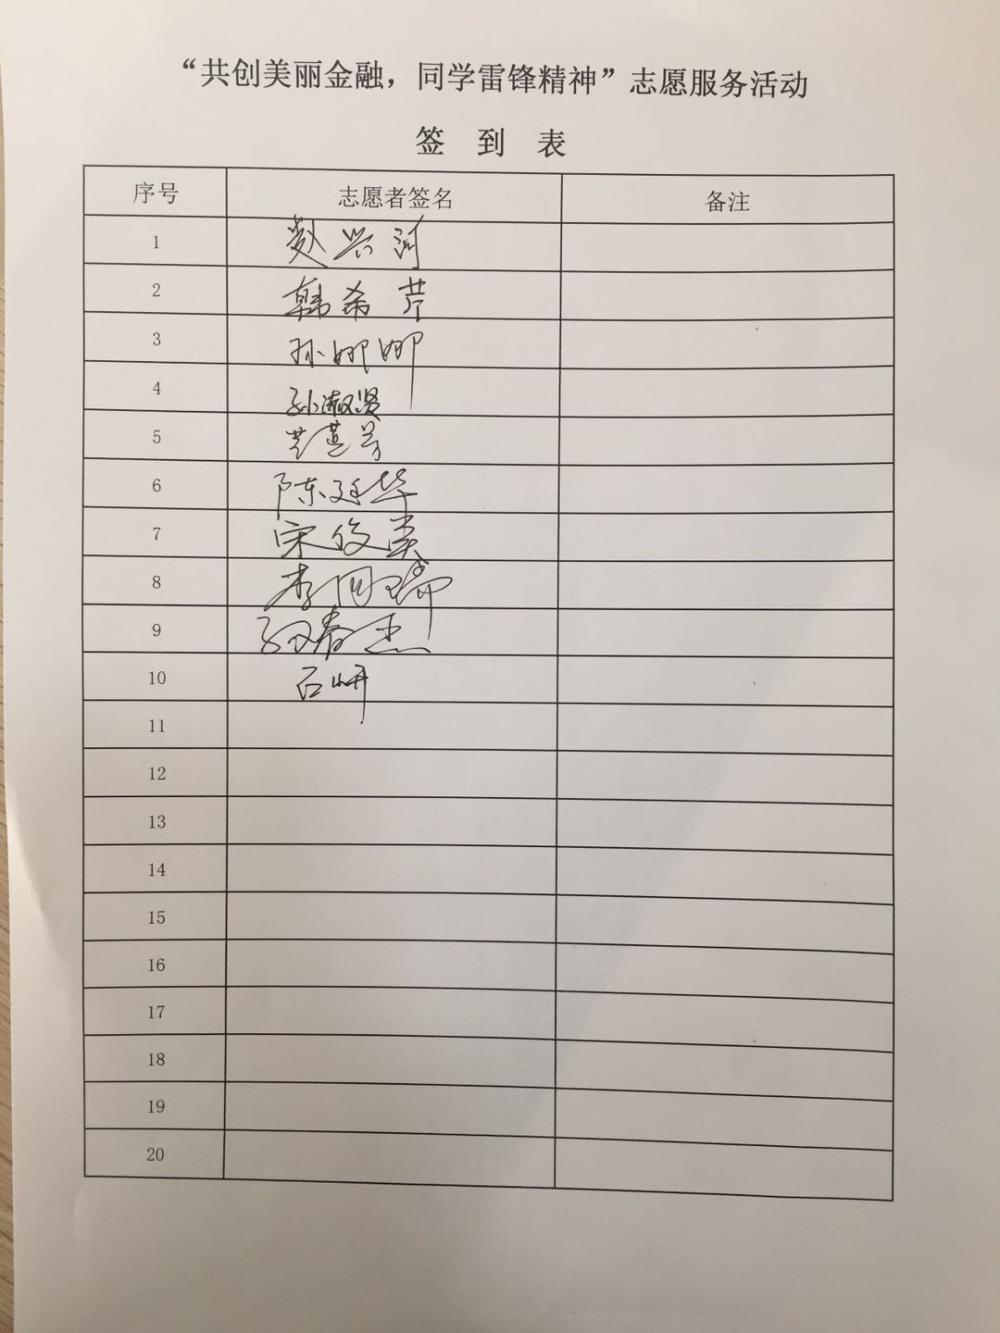 “共创美丽金融，同学雷锋精神”志愿服务活动
签 到 表
序号 志愿者签名 备注
1 赵兴河
2 韩希芹
3 孙娜娜
4 孙淑贤
5
6 陈廷华
7 宋俊英
8 李同瑞
9 春杰
10 石妍
11
12
13
14
15
16
17
18
19
20